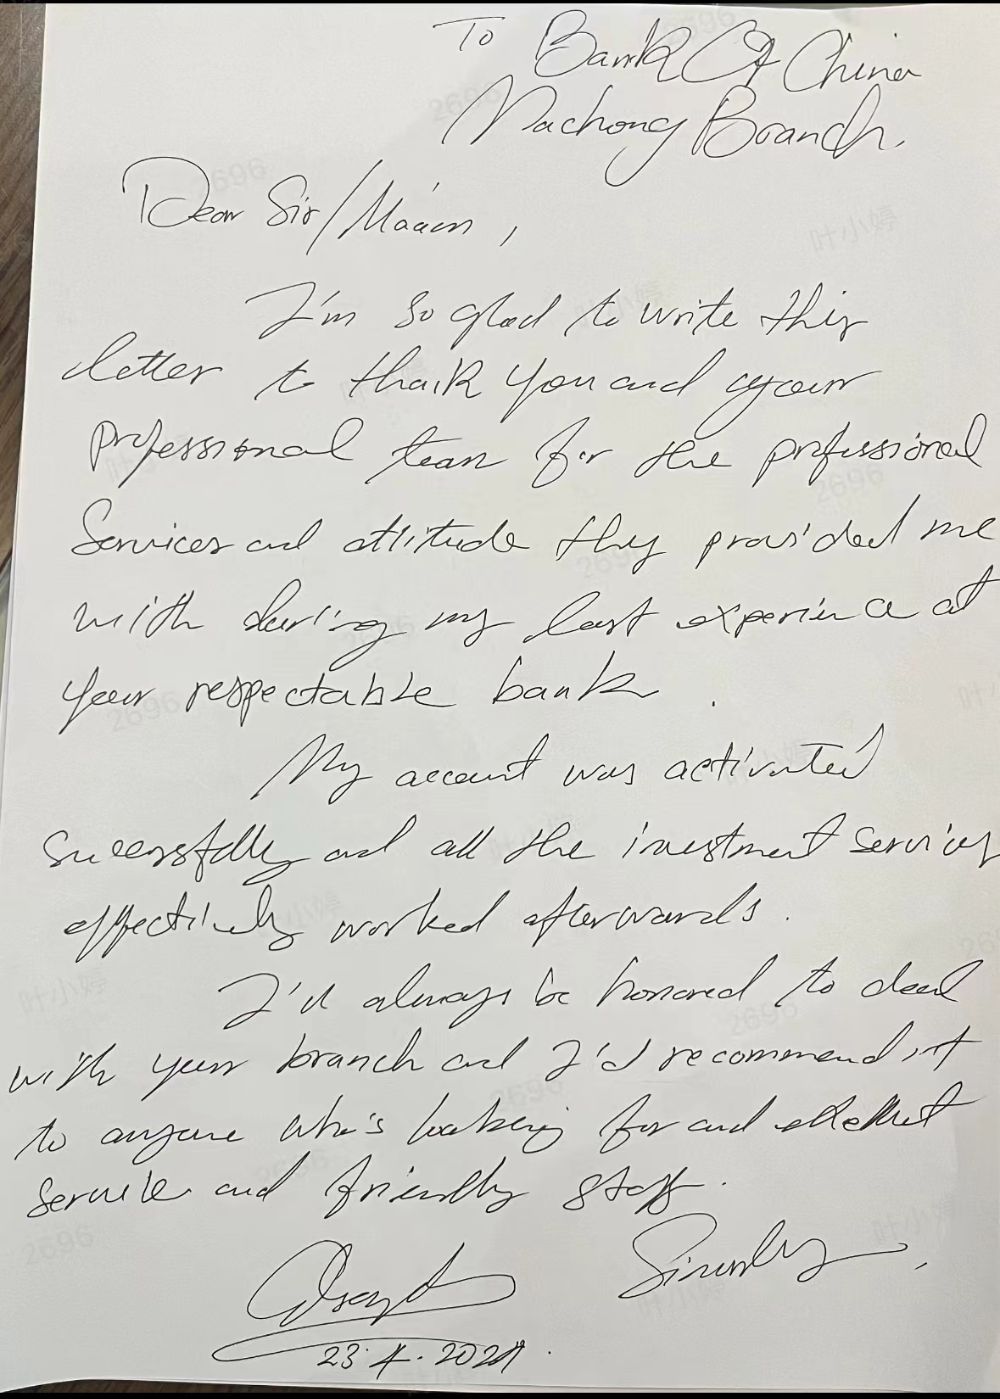 To Bank Of China
Machong Branch.
Dear Sir/Máam,
I'm so glad to write this
letter to thank you and your
professional team for the professional
Services and attitude they provided me
with during my last experience at
your respectable bank.
My account was activated
sucessfully and all the investment services
effectively worked afterwards.
I'll always be honored to deal
with your branch and I'd recommend it
to anyone who's looking for and excellent
service and friendly staff.
Sincerely,
23.4.2021.
叶小婷
2696